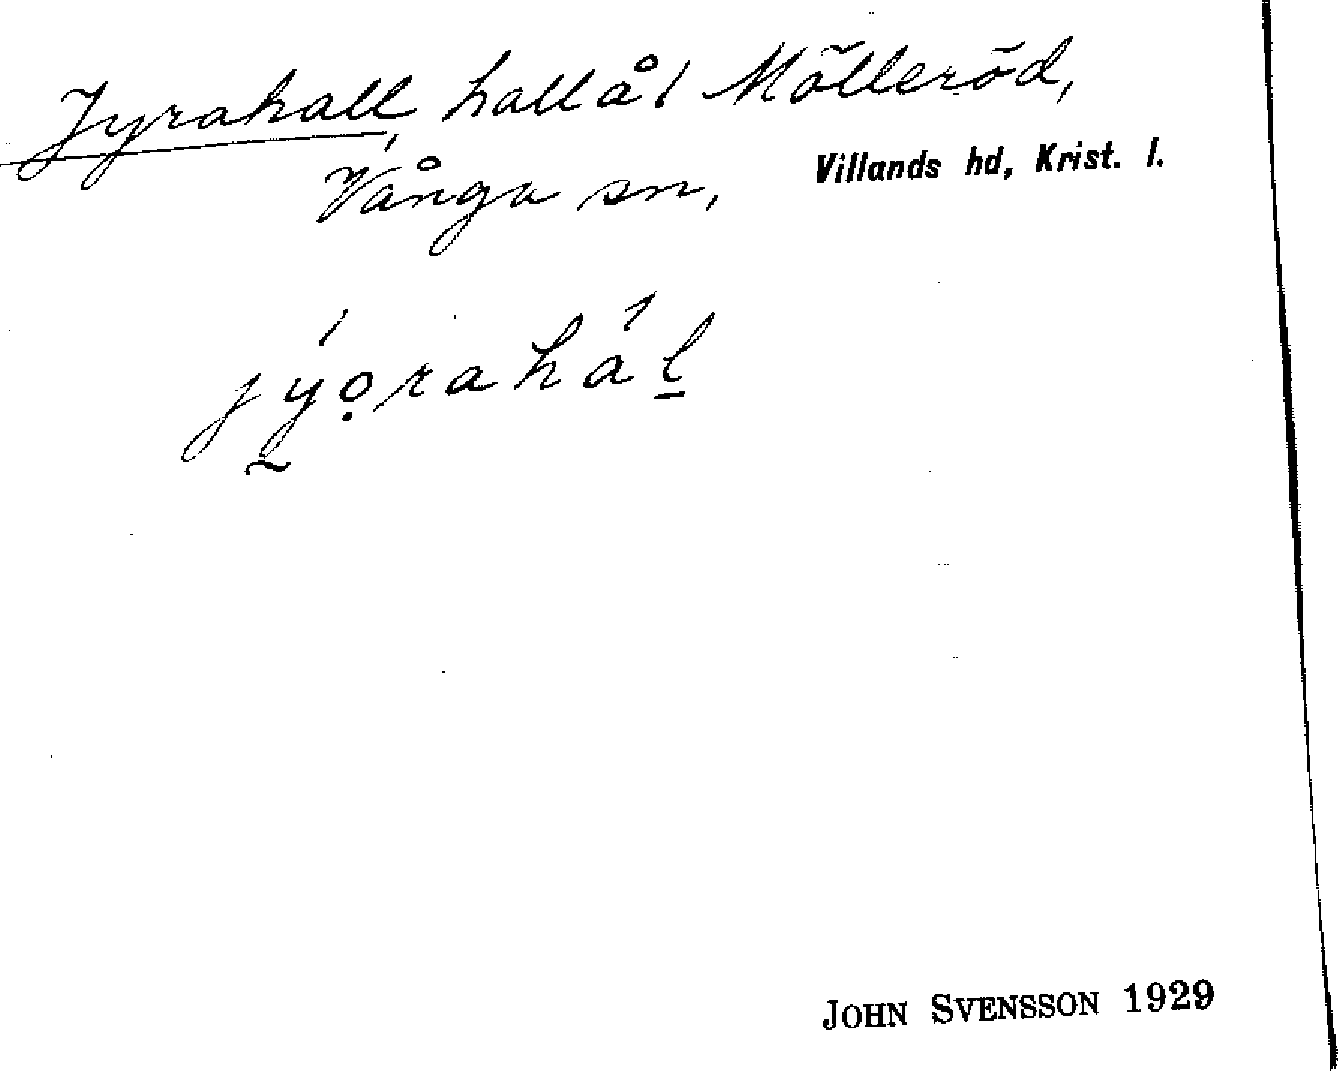 Jyrahall, hallål Mölleröd,
Vånga sn, Villands hd, Krist. l.
jy̰ọrahál̲
JOHN SVENSSON 1929